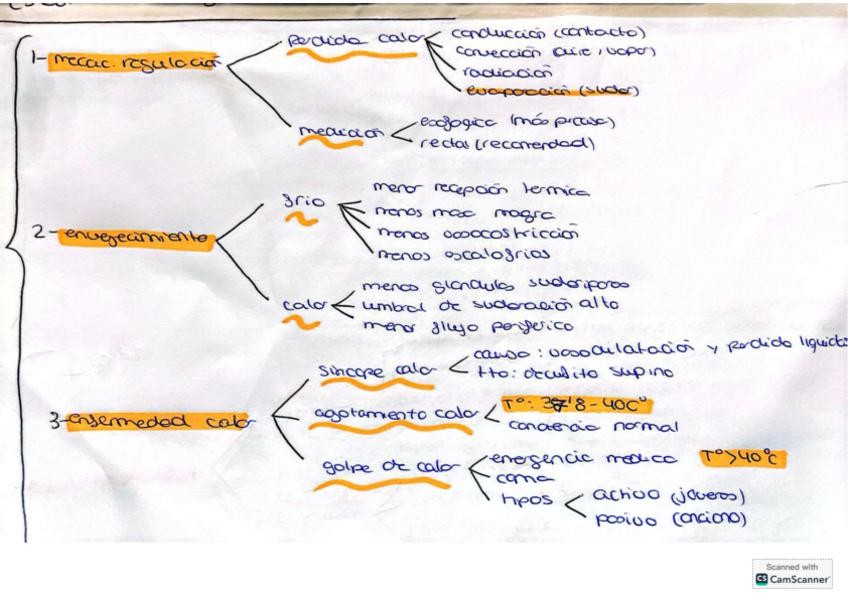 1- mecac. regulación
perdida calor
conducción (contacto)
convección (aire, vapor)
radiación
evaporación (sudor)
medición
esofagica (más precisa)
rectal (recomendad)
2- envejecimiento
frio
menor recepción termica
menos masa magra
menos vasocostricción
menos escalofrios
calor
menos glandulas sudoriparas
umbral de sudoración alto
menor flujo periferico
3- enfermedad calor
sincope calor
causa: vasodilatación y perdida liquidos
tto: decúbito supino
agotamiento calor
Tº: 37'8 - 40Cº
conciencia normal
golpe de calor
emergencia medica Tº>40ºc
coma
tipos
activo (jovenes)
pasivo (anciano)
Scanned with
CS CamScanner